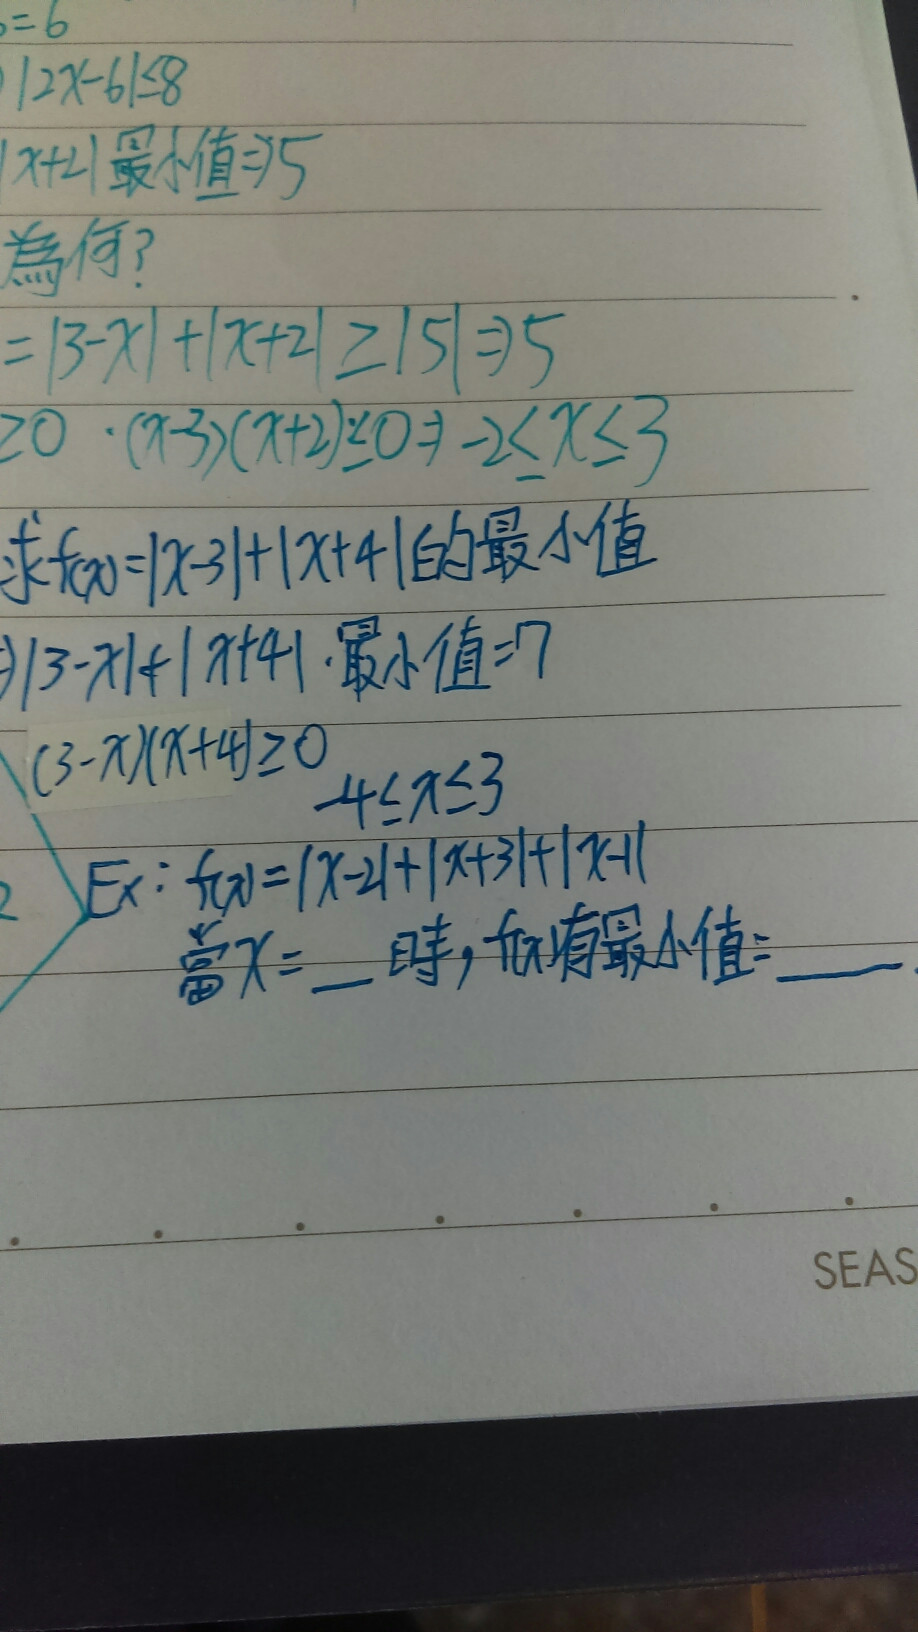 =6
|2x-6|≤8
|x+2| 最小值⇒5
為何?
= |3-x| + |x+2| ≥ |5| ⇒ 5
≥0 · (x-3)(x+2)≤0 ⇒ -2≤x≤3
求f(x)=|x-3|+|x+4|的最小值
⇒|3-x|+|x+4| . 最小值=7
(3-x)(x+4)≥0
-4≤x≤3
2
Ex: f(x)=|x-2|+|x+3|+|x-1|
當x=__時, f(x)有最小值=____.
SEAS